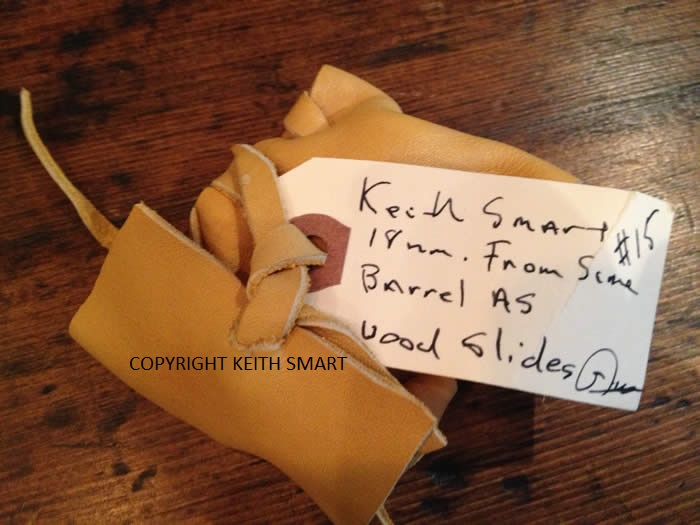 Keith Smart
#15
18mm. From Same
Barrel AS
wood slides
COPYRIGHT KEITH SMART